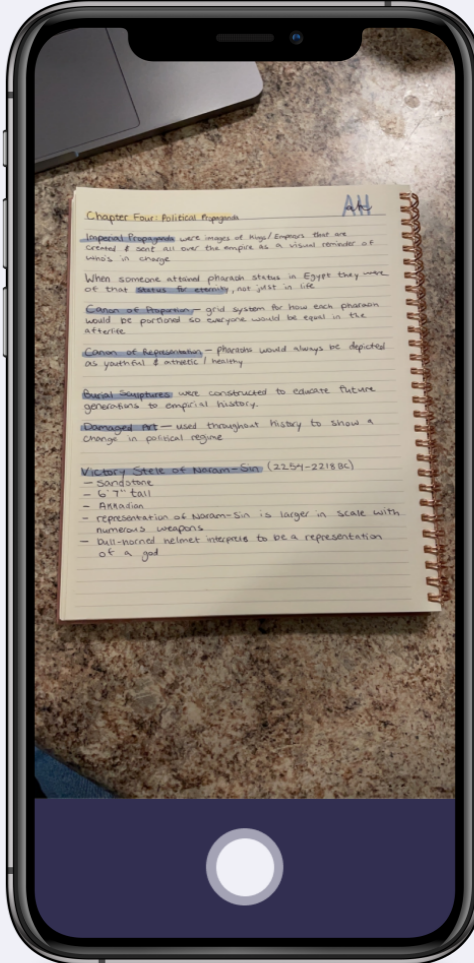 AH
Chapter Four: Political Propaganda
Imperial Propaganda were images of Kings/Emperors that are
created & sent all over the empire as a visual reminder of
who's in charge
When someone attained pharaoh status in Egypt they were
of that status for eternity, not just in life.
Canon of Proportion – grid system for how each pharaoh
would be portioned so everyone would be equal in the
afterlife
Canon of Representation – pharaohs would always be depicted
as youthful & athletic / healthy
Burial Sculptures were constructed to educate future
generations to empirial history.
Damaged Art – used throughout history to show a
change in political regime
Victory Stele of Naram-Sin (2254-2218 BC)
– Sandstone
– 6'7" tall
– Akkadian
– representation of Naram-Sin is larger in scale with
numerous weapons
– Bull-horned helmet interprets to be a representation
of a god